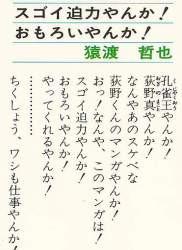 スゴイ迫力やんか!
おもろいやんか!
猿渡 哲也
孔雀王やんか!
荻野真やんか!
なんやあのスケベな
荻野くんのマンガやんか!
おっ!なんや、このマンガは!
スゴイ迫力やんか!
おもろいやんか!
やってくれるやんか!
…………
ちくしょう、ワシも仕事やんか!